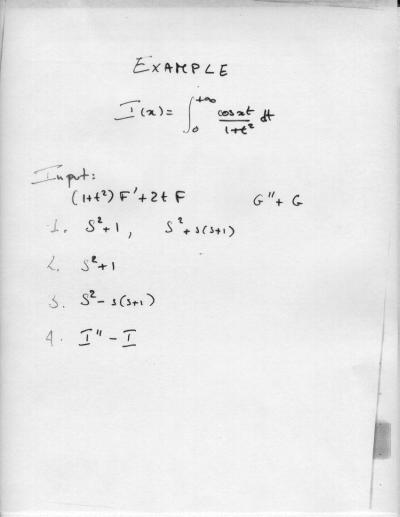 EXAMPLE
I(x) = ∫₀^{+∞} cos xt / 1+t² dt
Input:
(1+t²) F' + 2t F G'' + G
1. S²+1, S²+s(s+1)
2. S²+1
3. S²-s(s+1)
4. I'' - I